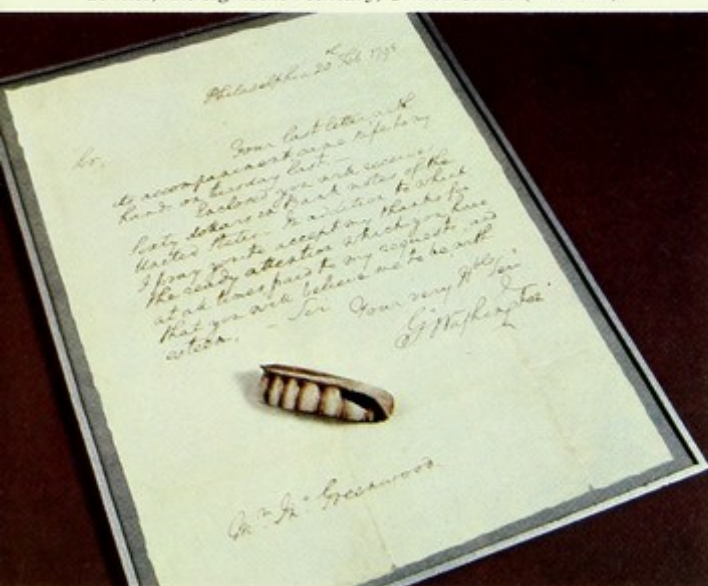 Philadelphia 20th Feb. 1795
Sir,
Your last letter with
its accompaniment came safe to my
hands on tuesday last. —
Enclosed you will receive
sixty dollars in Bank notes of the
United States. — In addition to which
I pray you to accept my thanks for
the ready attention which you have
at all times paid to my requests, and
that you will believe me to be, with
esteem. — Sir Your very Hble. Ser
Go. Washington
Mr. Jno. Greenwood